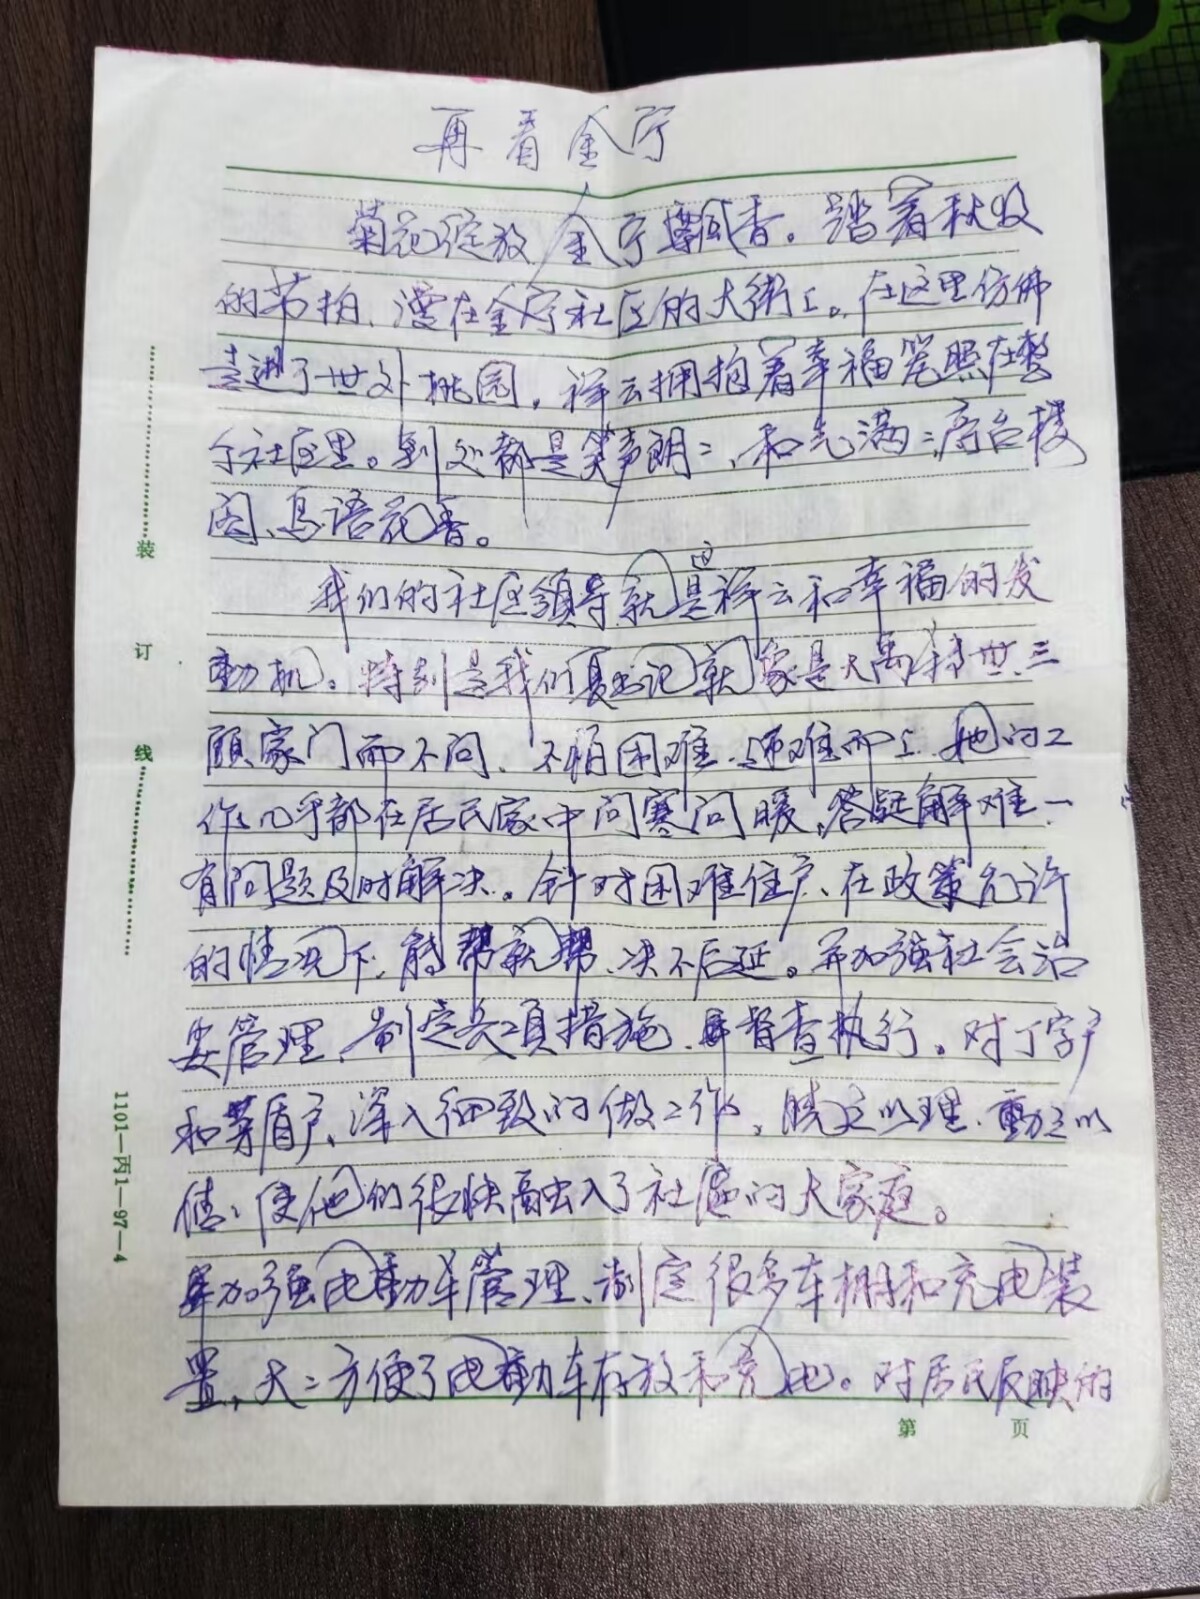 再看金宁
菊花绽放金宁飘香。踏着秋收
的节拍、漫在金宁社区的大街上。在这里仿佛
走进了世外桃园，祥云拥抱着幸福笼照在整
个社区里。到处都是笑声朗二、和气满二、高台楼
阁、鸟语花香。
我们的社区领导就是这祥云和幸福的发
動机。特别是我们夏书记就象是大禹转世三
顾家门而不问、不怕困难.迎难而上.她的工
作几乎都在居民家中问寒问暖,答疑解难、
有问题及时解决。针对困难住户、在政策允许
的情况下,能帮就帮、决不后延。并加强社会治
安管理,制定各项措施.并督查执行。对丁字户
和茅盾户、深入细致的做工作,晓之以理.動之以
情;使他们很快融入了社区的大家庭。
并加强电動车管理、制定很多车棚和充电装
置,大二方便了电動车存放和充电。对居民反映的
装
订
线
1101—丙1—97—4
第 页